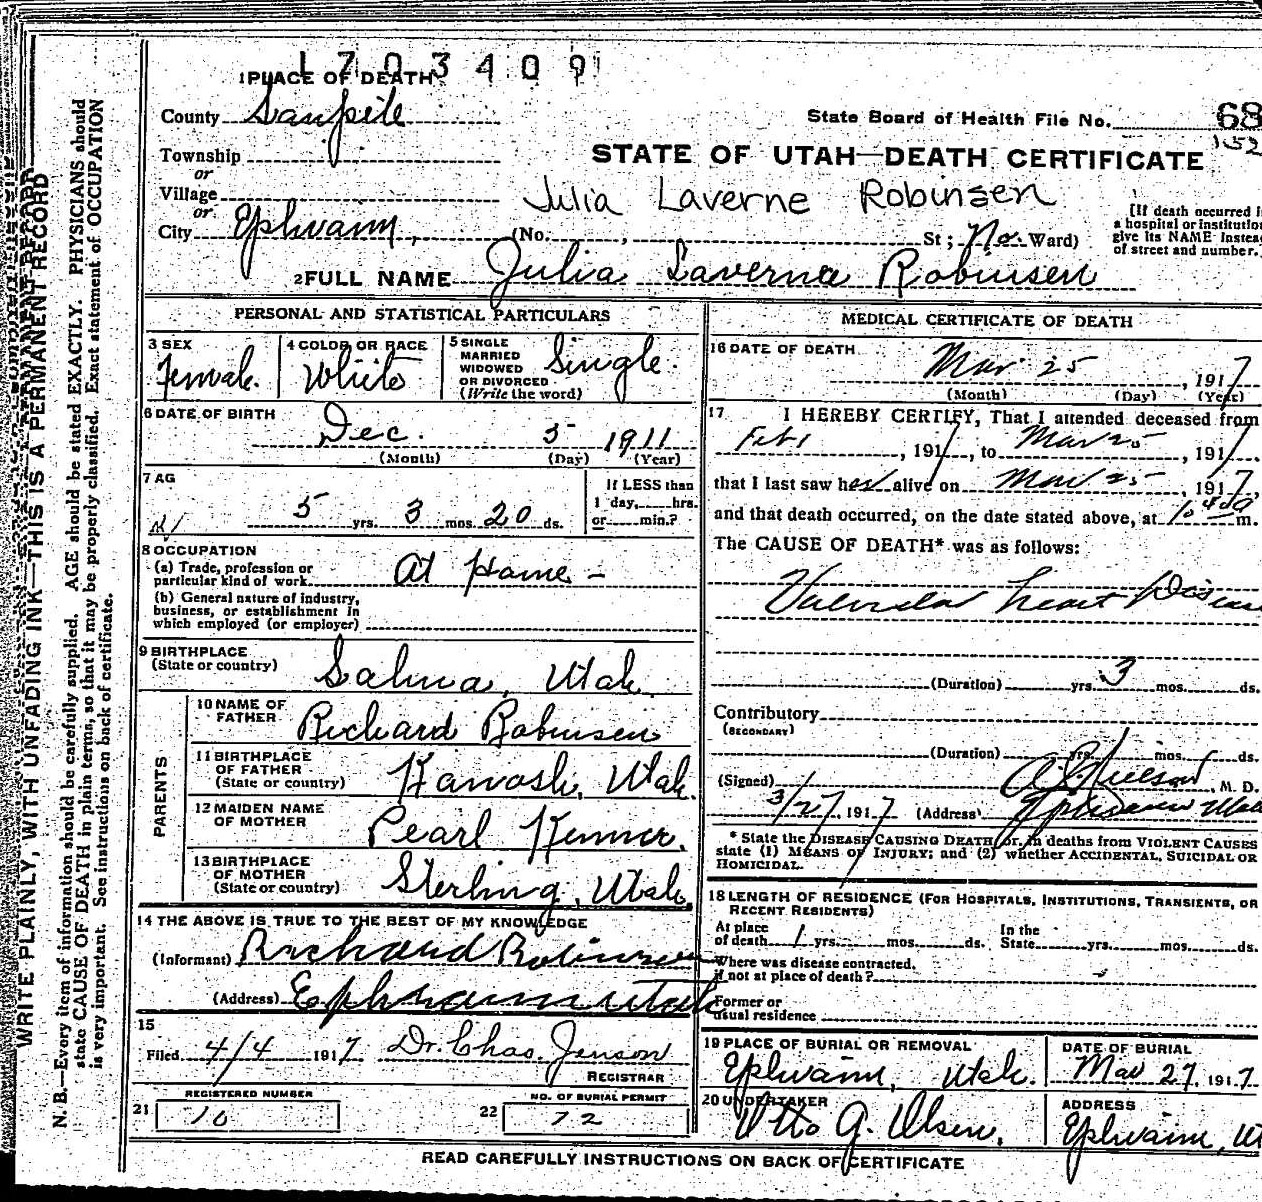 1703409
1 PLACE OF DEATH
County Sanpete
State Board of Health File No. 68
152
Township
or
STATE OF UTAH—DEATH CERTIFICATE
Village
Julia Laverne Robinsen
or
City Ephraim, (No. , St; No. Ward)
[If death occurred in
a hospital or institution
give its NAME instead
of street and number.
2 FULL NAME Julia Laverna Robinsen
PERSONAL AND STATISTICAL PARTICULARS
3 SEX
Female.
4 COLOR OR RACE
White
5 SINGLE
MARRIED
WIDOWED
OR DIVORCED
(Write the word)
Single.
6 DATE OF BIRTH
Dec. 5 1911
(Month) (Day) (Year)
7 AG
5 yrs. 3 mos. 20 ds.
If LESS than
1 day, hrs.
or min.?
8 OCCUPATION
(a) Trade, profession or
particular kind of work At Home -
(b) General nature of industry,
business, or establishment in
which employed (or employer)
9 BIRTHPLACE
(State or country) Salina, Utah.
PARENTS
10 NAME OF
FATHER Richard Robinsen
11 BIRTHPLACE
OF FATHER
(State or country) Kanosh, Utah.
12 MAIDEN NAME
OF MOTHER Pearl Kenner.
13 BIRTHPLACE
OF MOTHER
(State or country) Sterling, Utah.
14 THE ABOVE IS TRUE TO THE BEST OF MY KNOWLEDGE
(Informant) Richard Robinsen
(Address) Ephraim Utah
15
Filed 4/4 1917 Dr. Chas. Jenson
REGISTRAR
21 REGISTERED NUMBER
10
22 NO. OF BURIAL PERMIT
72
MEDICAL CERTIFICATE OF DEATH
16 DATE OF DEATH
Mar 25, 1917
(Month) (Day) (Year)
17 I HEREBY CERTIFY, That I attended deceased from
Feb 1, 1917, to Mar 25, 1917.
that I last saw her alive on Mar 25, 1917,
and that death occurred, on the date stated above, at m.
The CAUSE OF DEATH* was as follows:
Valvular heart Disease
(Duration) yrs. 3 mos. ds.
Contributory
(SECONDARY)
(Duration) yrs. mos. ds.
(Signed) Nielson, M. D.
3/27, 1917 (Address) Ephraim Utah
* State the DISEASE CAUSING DEATH or, in deaths from VIOLENT CAUSES
state (1) MEANS OF INJURY; and (2) whether ACCIDENTAL, SUICIDAL OR
HOMICIDAL.
18 LENGTH OF RESIDENCE (FOR HOSPITALS, INSTITUTIONS, TRANSIENTS, OR
RECENT RESIDENTS)
At place
of death 1 yrs. mos. ds.
In the
State yrs. mos. ds.
Where was disease contracted,
if not at place of death?
Former or
usual residence
19 PLACE OF BURIAL OR REMOVAL
Ephraim, Utah.
DATE OF BURIAL
Mar 27, 1917
20 UNDERTAKER
Otto G. Olsen,
ADDRESS
Ephraim, Ut
READ CAREFULLY INSTRUCTIONS ON BACK OF CERTIFICATE
WRITE PLAINLY, WITH UNFADING INK—THIS IS A PERMANENT RECORD
N. B.—Every item of information should be carefully supplied. AGE should be stated EXACTLY. PHYSICIANS should
state CAUSE OF DEATH in plain terms, so that it may be properly classified. Exact statement of OCCUPATION
is very important. See instructions on back of certificate.